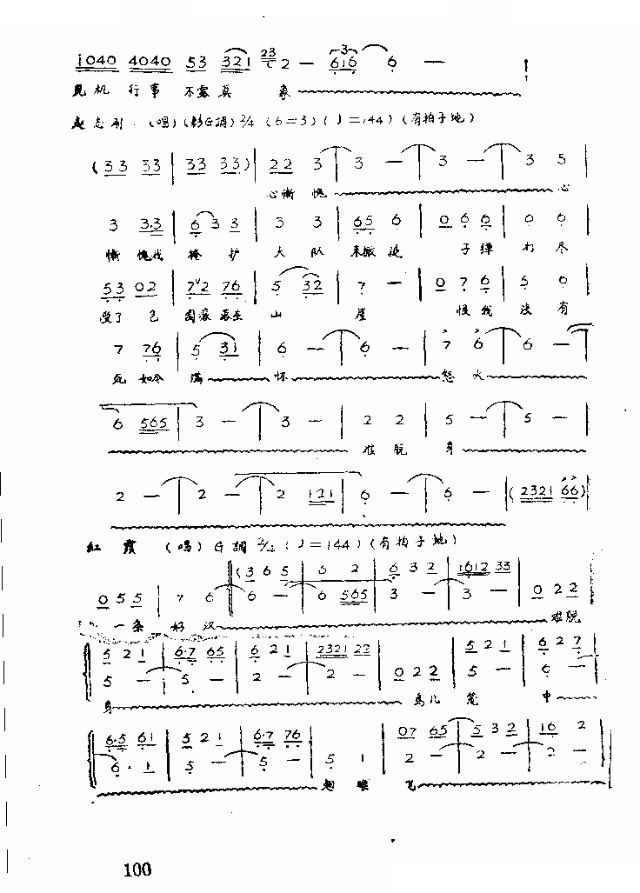 i040 4040 53 321 23 2 — 616 6 —
見机 行事 不露真 象
赵志刚 (唱) 2/4 (6=3) (♩=144) (有拍子地)
(33 33 | 33 33) | 22 3 | 3 — | 3 — | 3 5 |
心惭愧 心
3 3.3 | 6 3 3 | 3 3 | 65 6 | 0 6 6 | 6 6
惭 愧我 掩 护 大 队 来撤退 子弹 打 尽
53 02 | 72 76 | 5 32 | 7 — | 0 7 6 | 5 6
受了 包 围滚落在 山 崖 恨我 没有
7 76 | 5 31 | 6 — | 6 — | 7 6 | 6 —
死 如今 满 怀 怒火
6 565 | 3 — | 3 — | 2 2 | 5 — | 5 — |
难脱 身
2 — | 2 — | 2 121 | 6 — | 6 — | (2321 66)
紅霞 (唱) G調 2/4 (♩=144) (有拍子地)
(3 6 5 | 6 2 | 6 3 2 | 1612 33
0 5 5 | 7 6 | 6 — | 6 565 | 3 — | 3 — | 0 2 2
一条 好汉 难脱
5 2 1 | 6·7 65 | 6 2 1 | 2321 22 | 5 2 1 | 6 2 7
5 — | 5 — | 2 — | 2 — | 0 2 2 | 5 — | 6 —
身 鸟儿 笼 中
6·5 61 | 5 2 1 | 6·7 76 | 07 65 | 5 3 2 | 16 2
6 · 1 | 5 — | 5 — | 5 1 | 2 — | 2 — | 2 —
飞
100